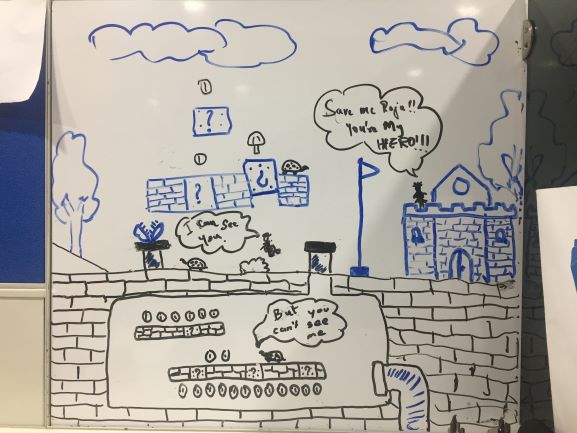 ?
Save me
You're My
HERO!!!
?
?
I can see
you.
But you
can't see
me
?
? ?